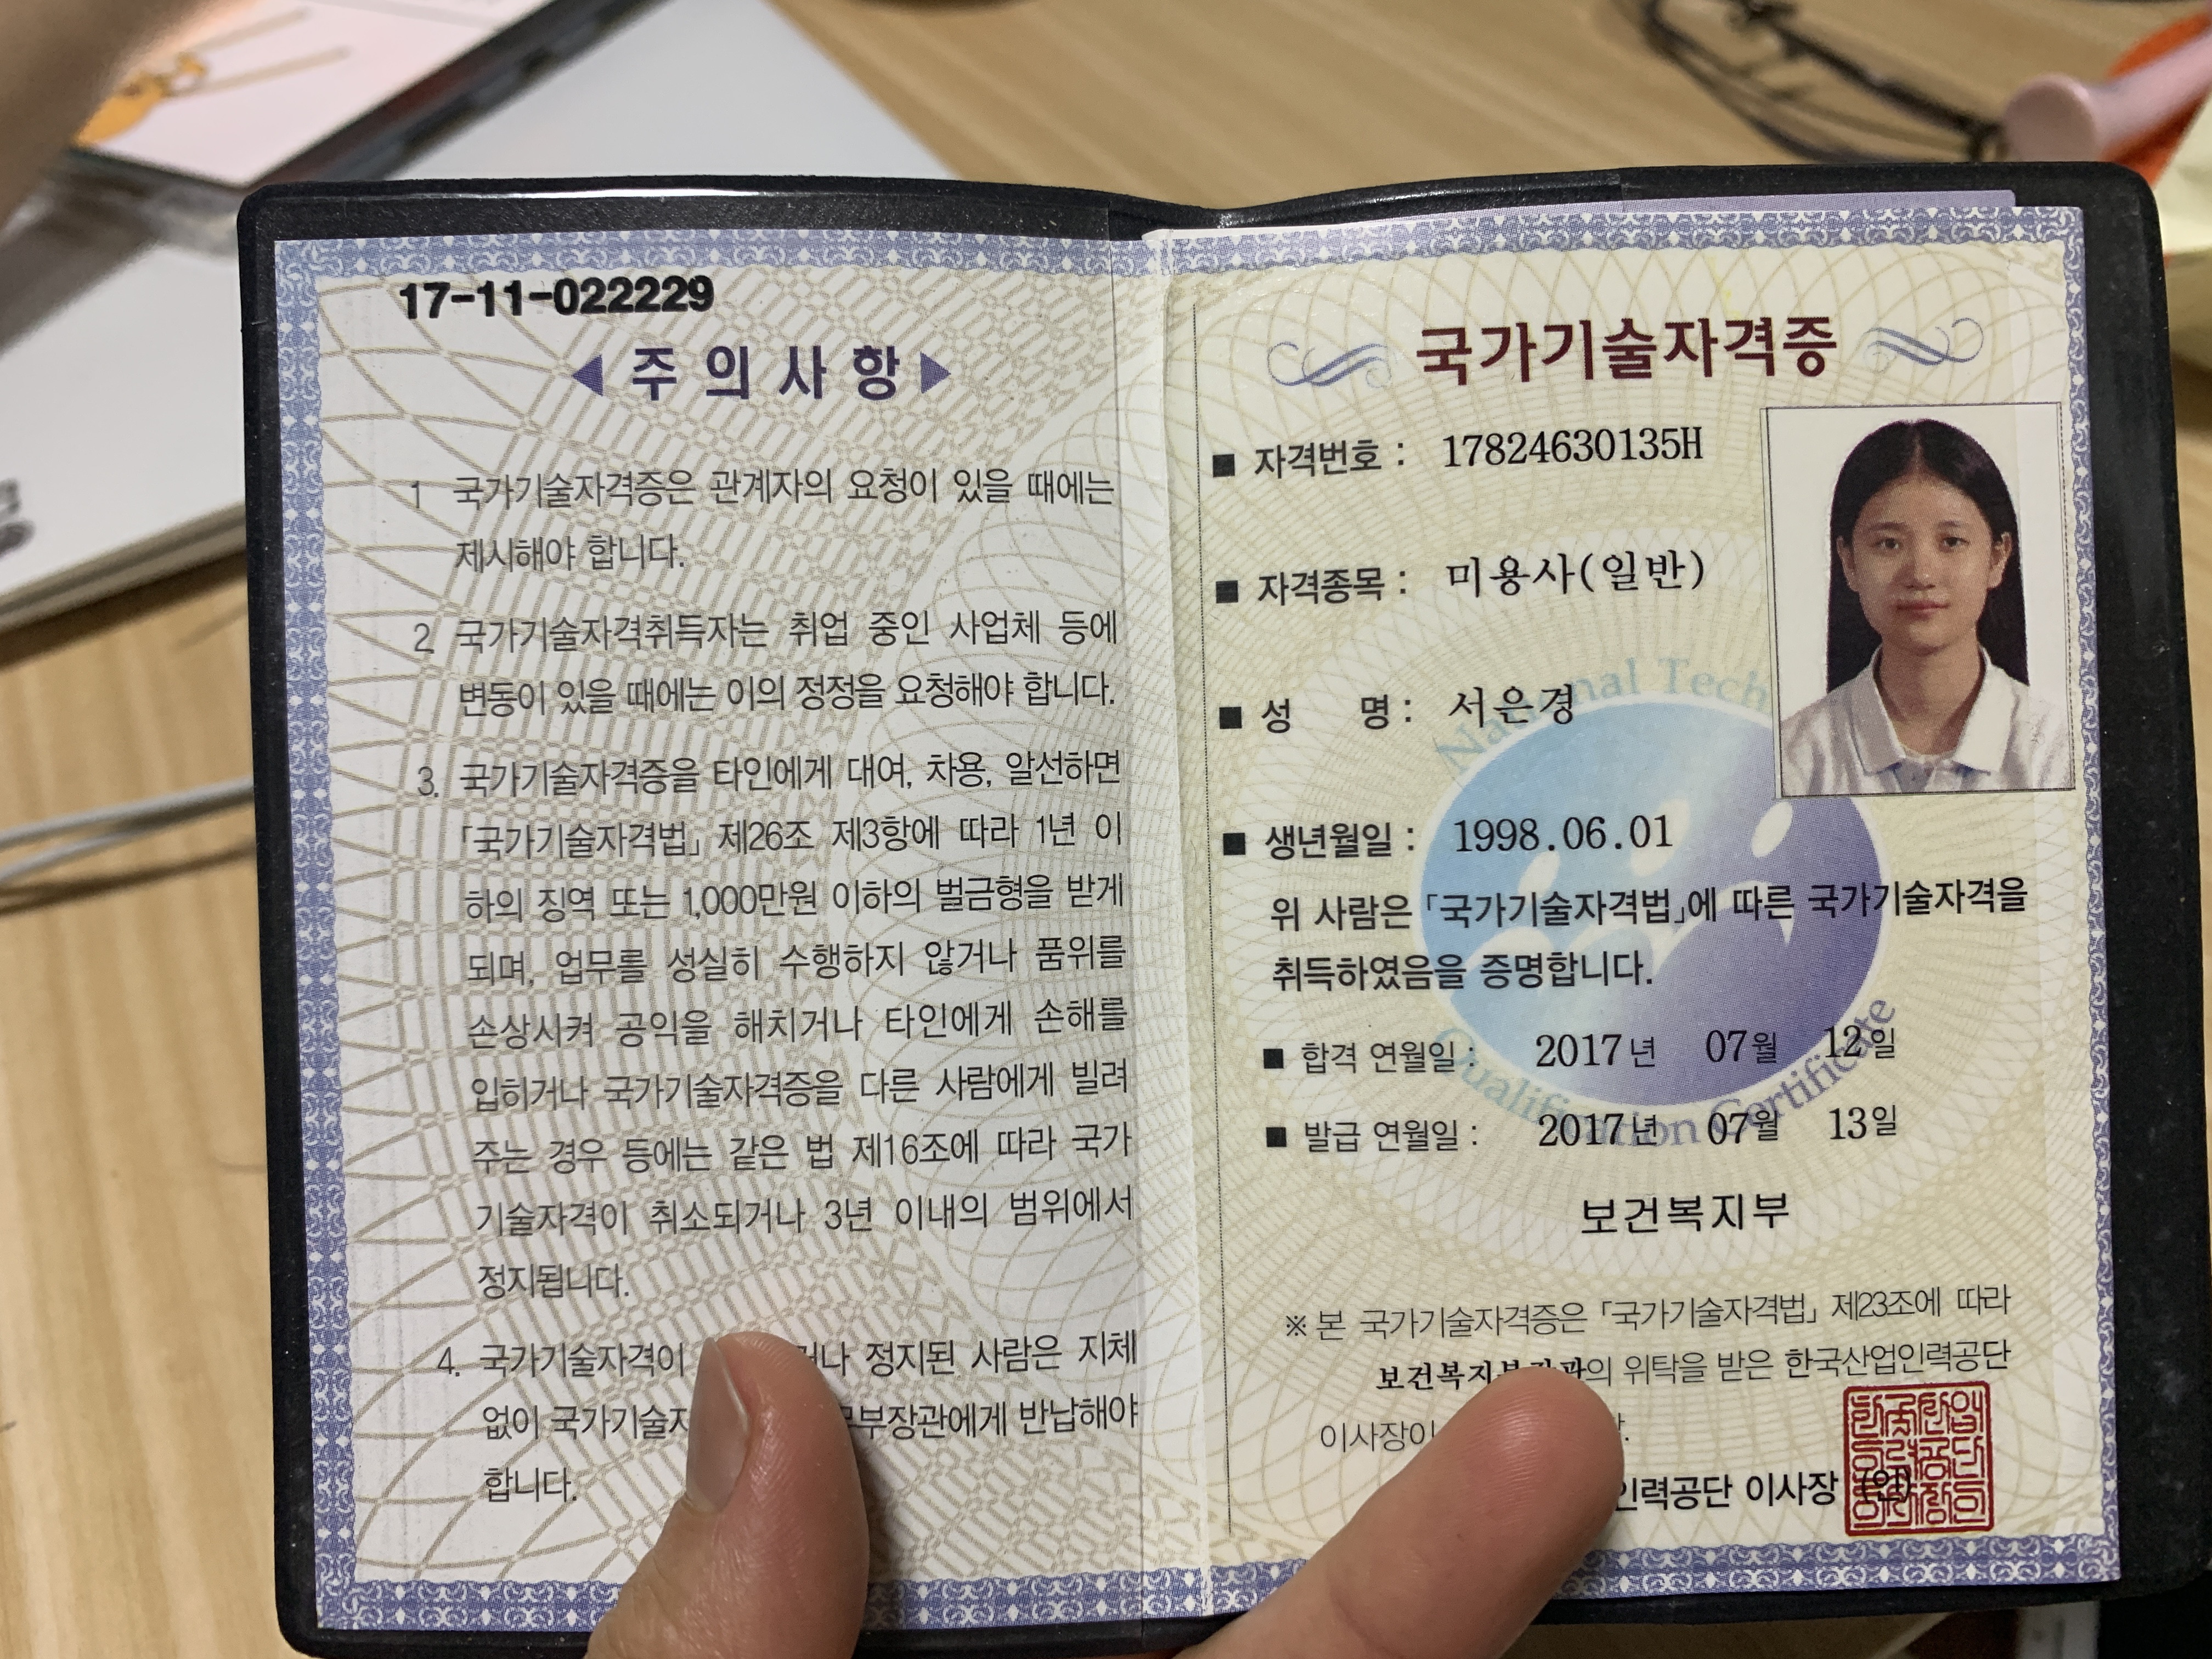 17-11-022229
◀ 주 의 사 항 ▶
1 국가기술자격증은 관계자의 요청이 있을 때에는
제시해야 합니다.
2. 국가기술자격취득자는 취업 중인 사업체 등에
변동이 있을 때에는 이의 정정을 요청해야 합니다.
3. 국가기술자격증을 타인에게 대여, 차용, 알선하면
「국가기술자격법」 제26조 제3항에 따라 1년 이
하의 징역 또는 1,000만원 이하의 벌금형을 받게
되며, 업무를 성실히 수행하지 않거나 품위를
손상시켜 공익을 해치거나 타인에게 손해를
입히거나 국가기술자격증을 다른 사람에게 빌려
주는 경우 등에는 같은 법 제16조에 따라 국가
기술자격이 취소되거나 3년 이내의 범위에서
정지됩니다.
4. 국가기술자격이 정지된 사람은 지체
없이 반납해야
합니다.
국가기술자격증
■ 자격번호 : 17824630135H
■ 자격종목 : 미용사(일반)
■ 성 명 : 서은경
■ 생년월일 : 1998.06.01
위 사람은 「국가기술자격법」에 따른 국가기술자격을
취득하였음을 증명합니다.
■ 합격 연월일 : 2017년 07월 12일
■ 발급 연월일 : 2017년 07월 13일
보건복지부
※ 본 국가기술자격증은 「국가기술자격법」 제23조에 따라
위탁을 받은 한국산업인력공단
이사장이
인력공단 이사장 (인)
National Tech
Qualification Certificate